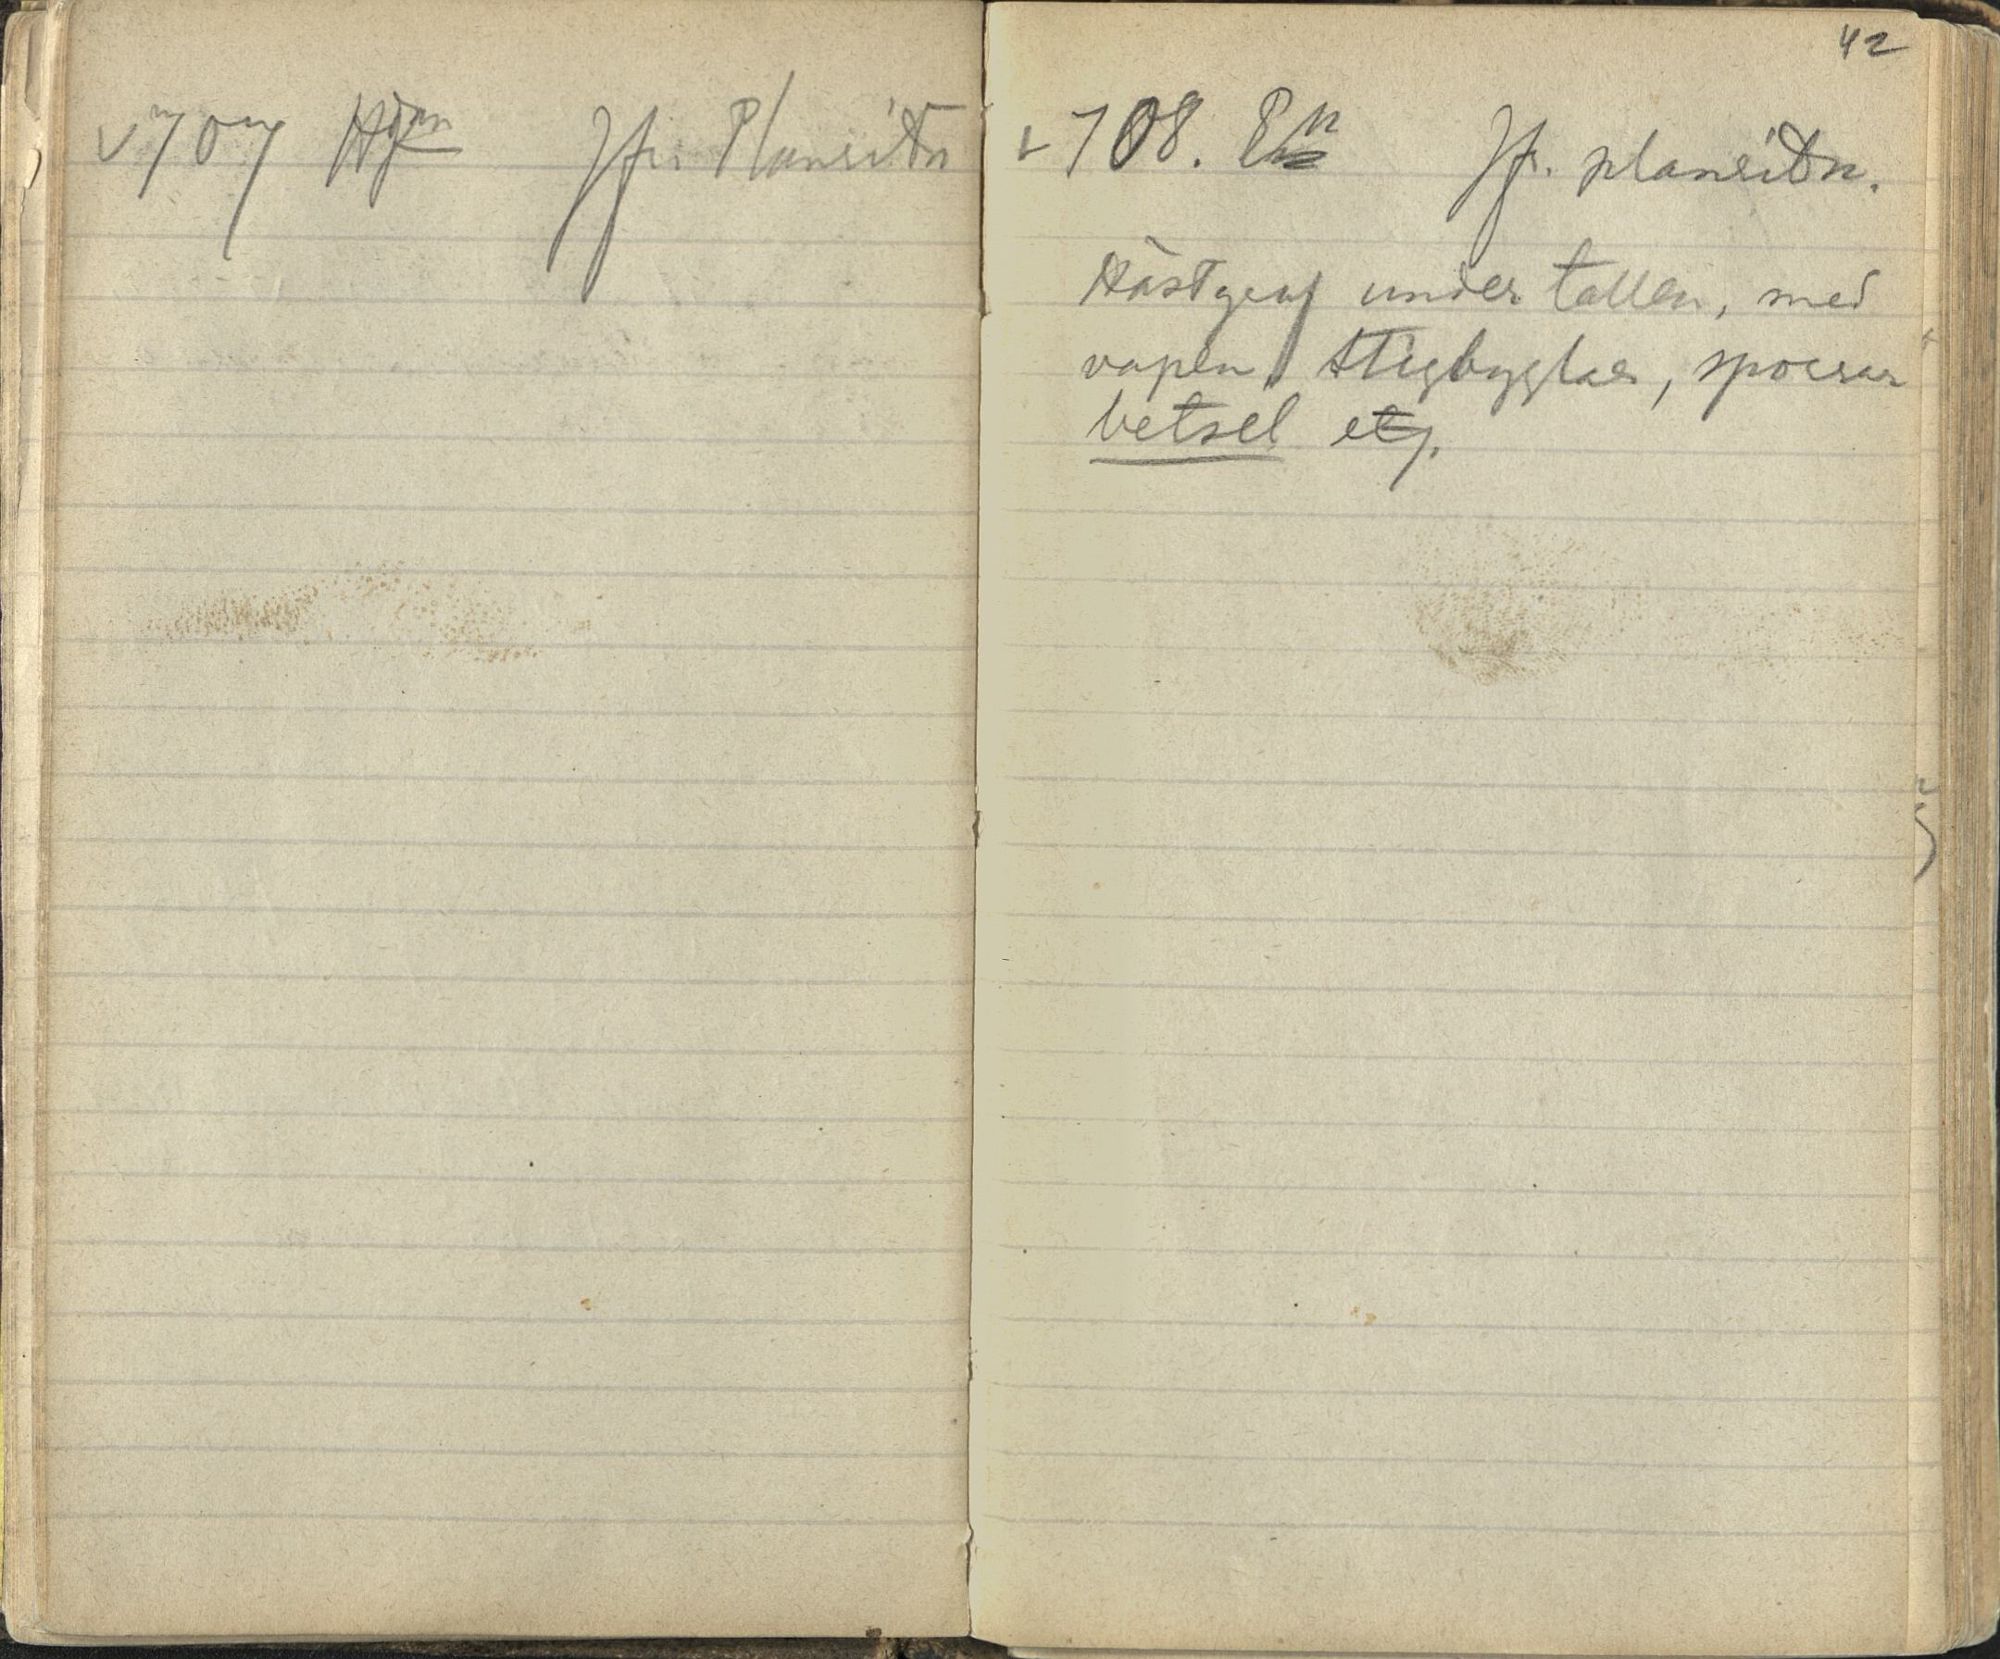 v 707 Hgn Jfr. Planritn
42
v 708. Jfr. planritn.
Hästgraf under tallen, med
vapen, stigbyglar, sporrar
betsel etc.